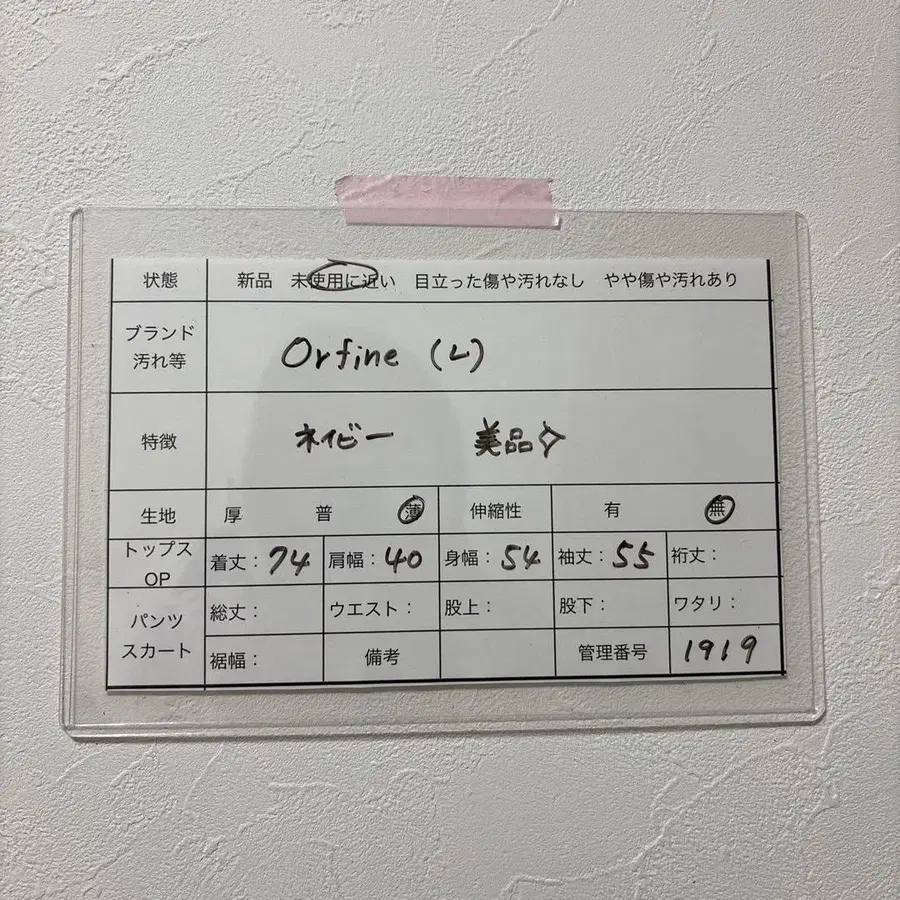 状態 新品 未使用に近い 目立った傷や汚れなし やや傷や汚れあり
ブランド
汚れ等
Orfine (L)
特徴 ネイビー 美品✧
生地 厚 普 薄 伸縮性 有 無
トップス
OP
着丈：74 肩幅：40 身幅：54 袖丈：55 裄丈：
パンツ
スカート
総丈： ウエスト： 股上： 股下： ワタリ：
裾幅： 備考 管理番号 1919